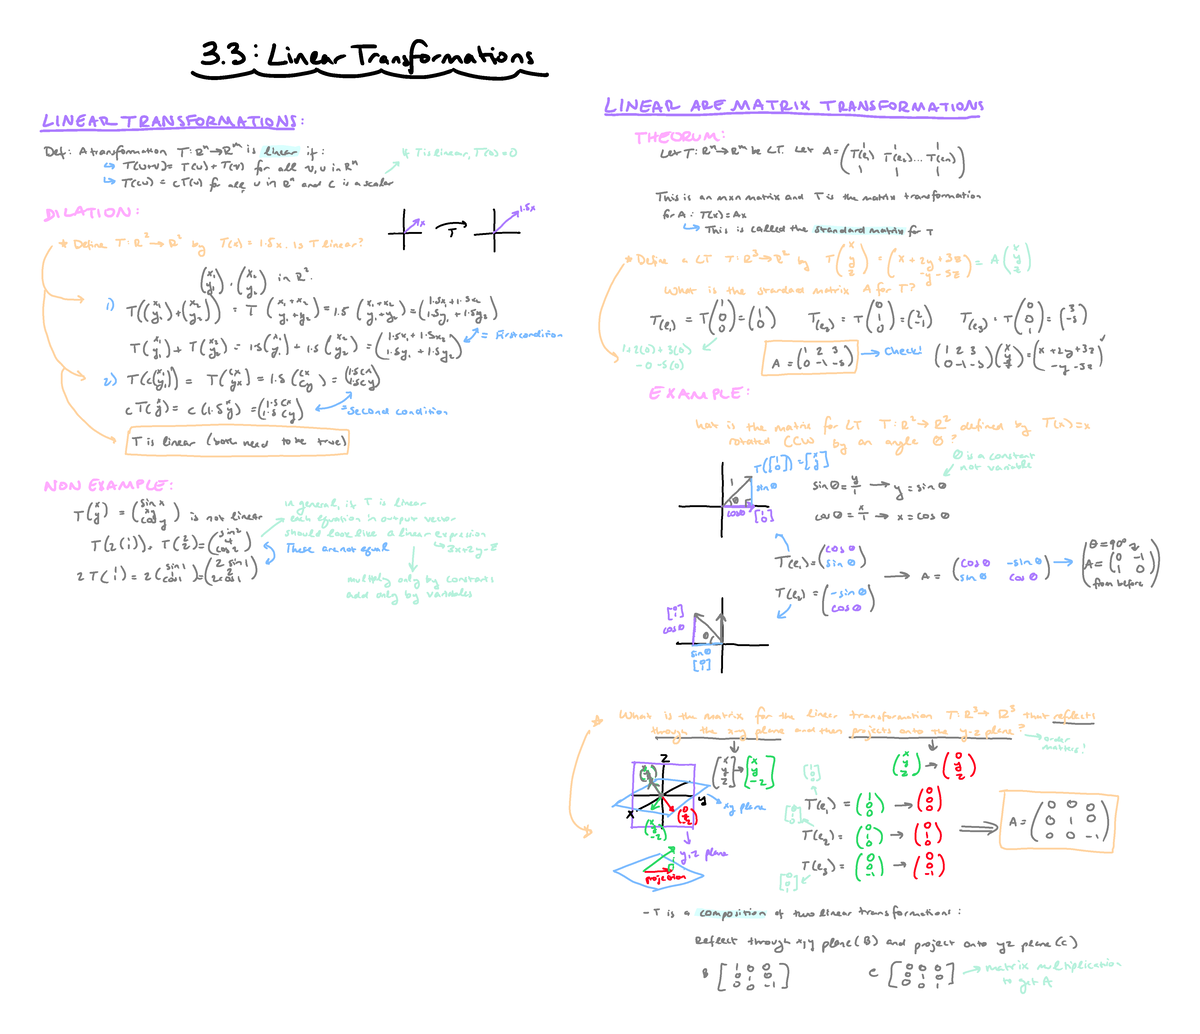 3.3: Linear Transformations
LINEAR TRANSFORMATIONS:
Def: A transformation T: R^n → R^m is linear if:
↳ T(u+v) = T(u) + T(v) for all v, u in R^n
↳ T(cu) = cT(u) for all u in R^n and c is a scalar
If T is linear, T(0)=0
DILATION:
* Define T: R^2 → R^2 by T(x) = 1.5x. Is T linear?
x T 1.5x
(x1 y1), (x2 y2) in R^2.
1) T((x1 y1)+(x2 y2)) = T(x1+x2 y1+y2) = 1.5(x1+x2 y1+y2) = (1.5x1+1.5x2 1.5y1+1.5y2)
T(x1 y1) + T(x2 y2) = 1.5(x1 y1) + 1.5(x2 y2) = (1.5x1+1.5x2 1.5y1+1.5y2) = First condition
2) T(c(x1 y1)) = T(cx cy) = 1.5(cx cy) = (1.5cx 1.5cy)
cT(x y) = c(1.5 x y) = (1.5cx 1.5cy) = Second condition
T is linear (both need to be true)
NON EXAMPLE:
T(x y) = (sin x x+y cos y) is not linear
T(2(1 1)), T(2 2) = (sin2 4 cos2)
These are not equal
2T(1 1) = 2(sin1 2 cos1) = (2sin1 2cos1)
in general, if T is linear
each equation in output vector
should look like a linear expresion
↳ 3x+2y-z
multiply only by constants
add only by variables
LINEAR ARE MATRIX TRANSFORMATIONS
THEORUM:
Let T: R^n → R^m be LT. Let A = (T(e1) T(e2) ... T(en))
This is an mxn matrix and T is the matrix transformation
for A: T(x) = Ax
↳ This is called the standard matrix for T
* Define a LT T: R^3 → R^2 by T(x y z) = (x+2y+3z -y-5z) = A(x y z)
What is the standard matrix A for T?
T(e1) = T(1 0 0) = (1 0) T(e2) = T(0 1 0) = (2 -1) T(e3) = T(0 0 1) = (3 -5)
1+2(0)+3(0)
-0-5(0)
A = (1 2 3 0 -1 -5) → Check! (1 2 3 0 -1 -5)(x y z) = (x+2y+3z -y-5z) ✓
EXAMPLE:
hat is the matrix for LT T: R^2 → R^2 defined by T(x) = x
rotated CCW by an angle θ?
θ is a constant
not variable
T([1 0]) = [x y]
1 θ sinθ cosθ [1 0]
sinθ = y/1 → y = sinθ
cosθ = x/1 → x = cosθ
T(e1) = (cosθ sinθ)
T(e2) = (-sinθ cosθ)
→ A = (cosθ -sinθ sinθ cosθ) → (θ=90° A = (0 -1 1 0) from before)
[0 1] cosθ θ sinθ [0 1]
What is the matrix for the linear transformation T: R^3 → R^3 that reflects
through the x-y plane and then projects onto the y-z plane? → order matters!
[x y z] → [x y -z] (x y z) → (0 y z)
z y x xy plane
(x y z) (x y -z) (0 y -z)
y,z plane
projection
[1 0 0] T(e1) = (1 0 0) → (0 0 0)
[0 1 0] T(e2) = (0 1 0) → (0 1 0)
[0 0 1] T(e3) = (0 0 -1) → (0 0 -1)
⇒ A = (0 0 0 0 1 0 0 0 -1)
- T is a composition of two linear transformations:
Reflect through x,y plane (B) and project onto yz plane (C)
B [1 0 0 0 1 0 0 0 -1] C [0 0 0 0 1 0 0 0 1] → matrix multiplication
to get A